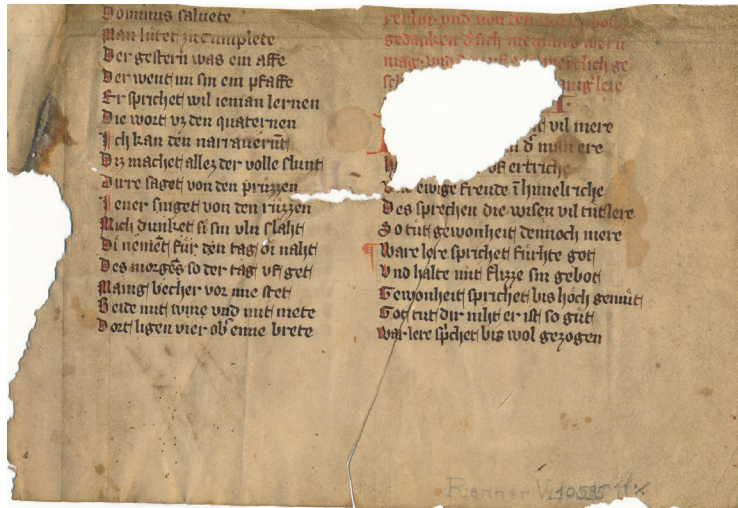 Dominus saluete
Man lutet zu Cumplete
Der gestern was ein affe
Der went nu sin ein pfaffe
Er sprichet wil ieman lernen
Die wort vz den quaternen
Ich kan den narrauerūt
Diz machet allez der volle slunt
Dirre saget von den pruzzen
Iener singet von den ruzzen
Mich dunket si sin vln slaht
Di nēmēt fur den tag di naht
Des morgēs so der tag vf get
Manig becher vor me stet
Beide mit wine vnd mit mete
Dort ligen vier ob eime brete
vnd von den
gedanken d sich nieman d wern
mag vnd
lere
vil mere
d man ere
vf ertriche
ewige freude ī himelriche
Des sprechen die wisen vil tutslere
So tut gewonheit dennoch mere
Ware lere sprichet furhte got
Vnd halte mit flizze sin gebot
Gewonheit sprichet bis hoch gemut
Got tut dir niht er ist so gut
War lere sp̄chet bis wol gezogen
Renner V. 10535